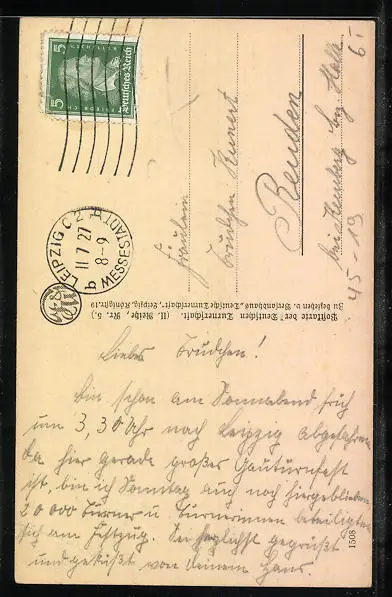 5
Deutsches Reich
5
LEIPZIG C 2
11 7 27
8-9
b
MESSESTADT
Fräulein
Trudchen Kunert
Reuden
bei Halle
45-19
6,-
Postkarte der Deutschen Turnerschaft. (II. Reihe, Nr. 5.)
Zu beziehen v. Versandhaus „Deutsche Turnerschaft“, Leipzig, Königstr. 19
Liebes Trudchen!
Bin schon am Sonnabend früh
um 3,30 Uhr nach Leipzig abgefahren
Da hier gerade großes Gauturnfest
ist, bin ich Sonntag auch noch hiergeblieben
20 000 Turner u. Turnerinnen beteiligten
sich am Festzug. Sei herzlichst gegrüßt
und geküßt von Deinem Hans.
1508